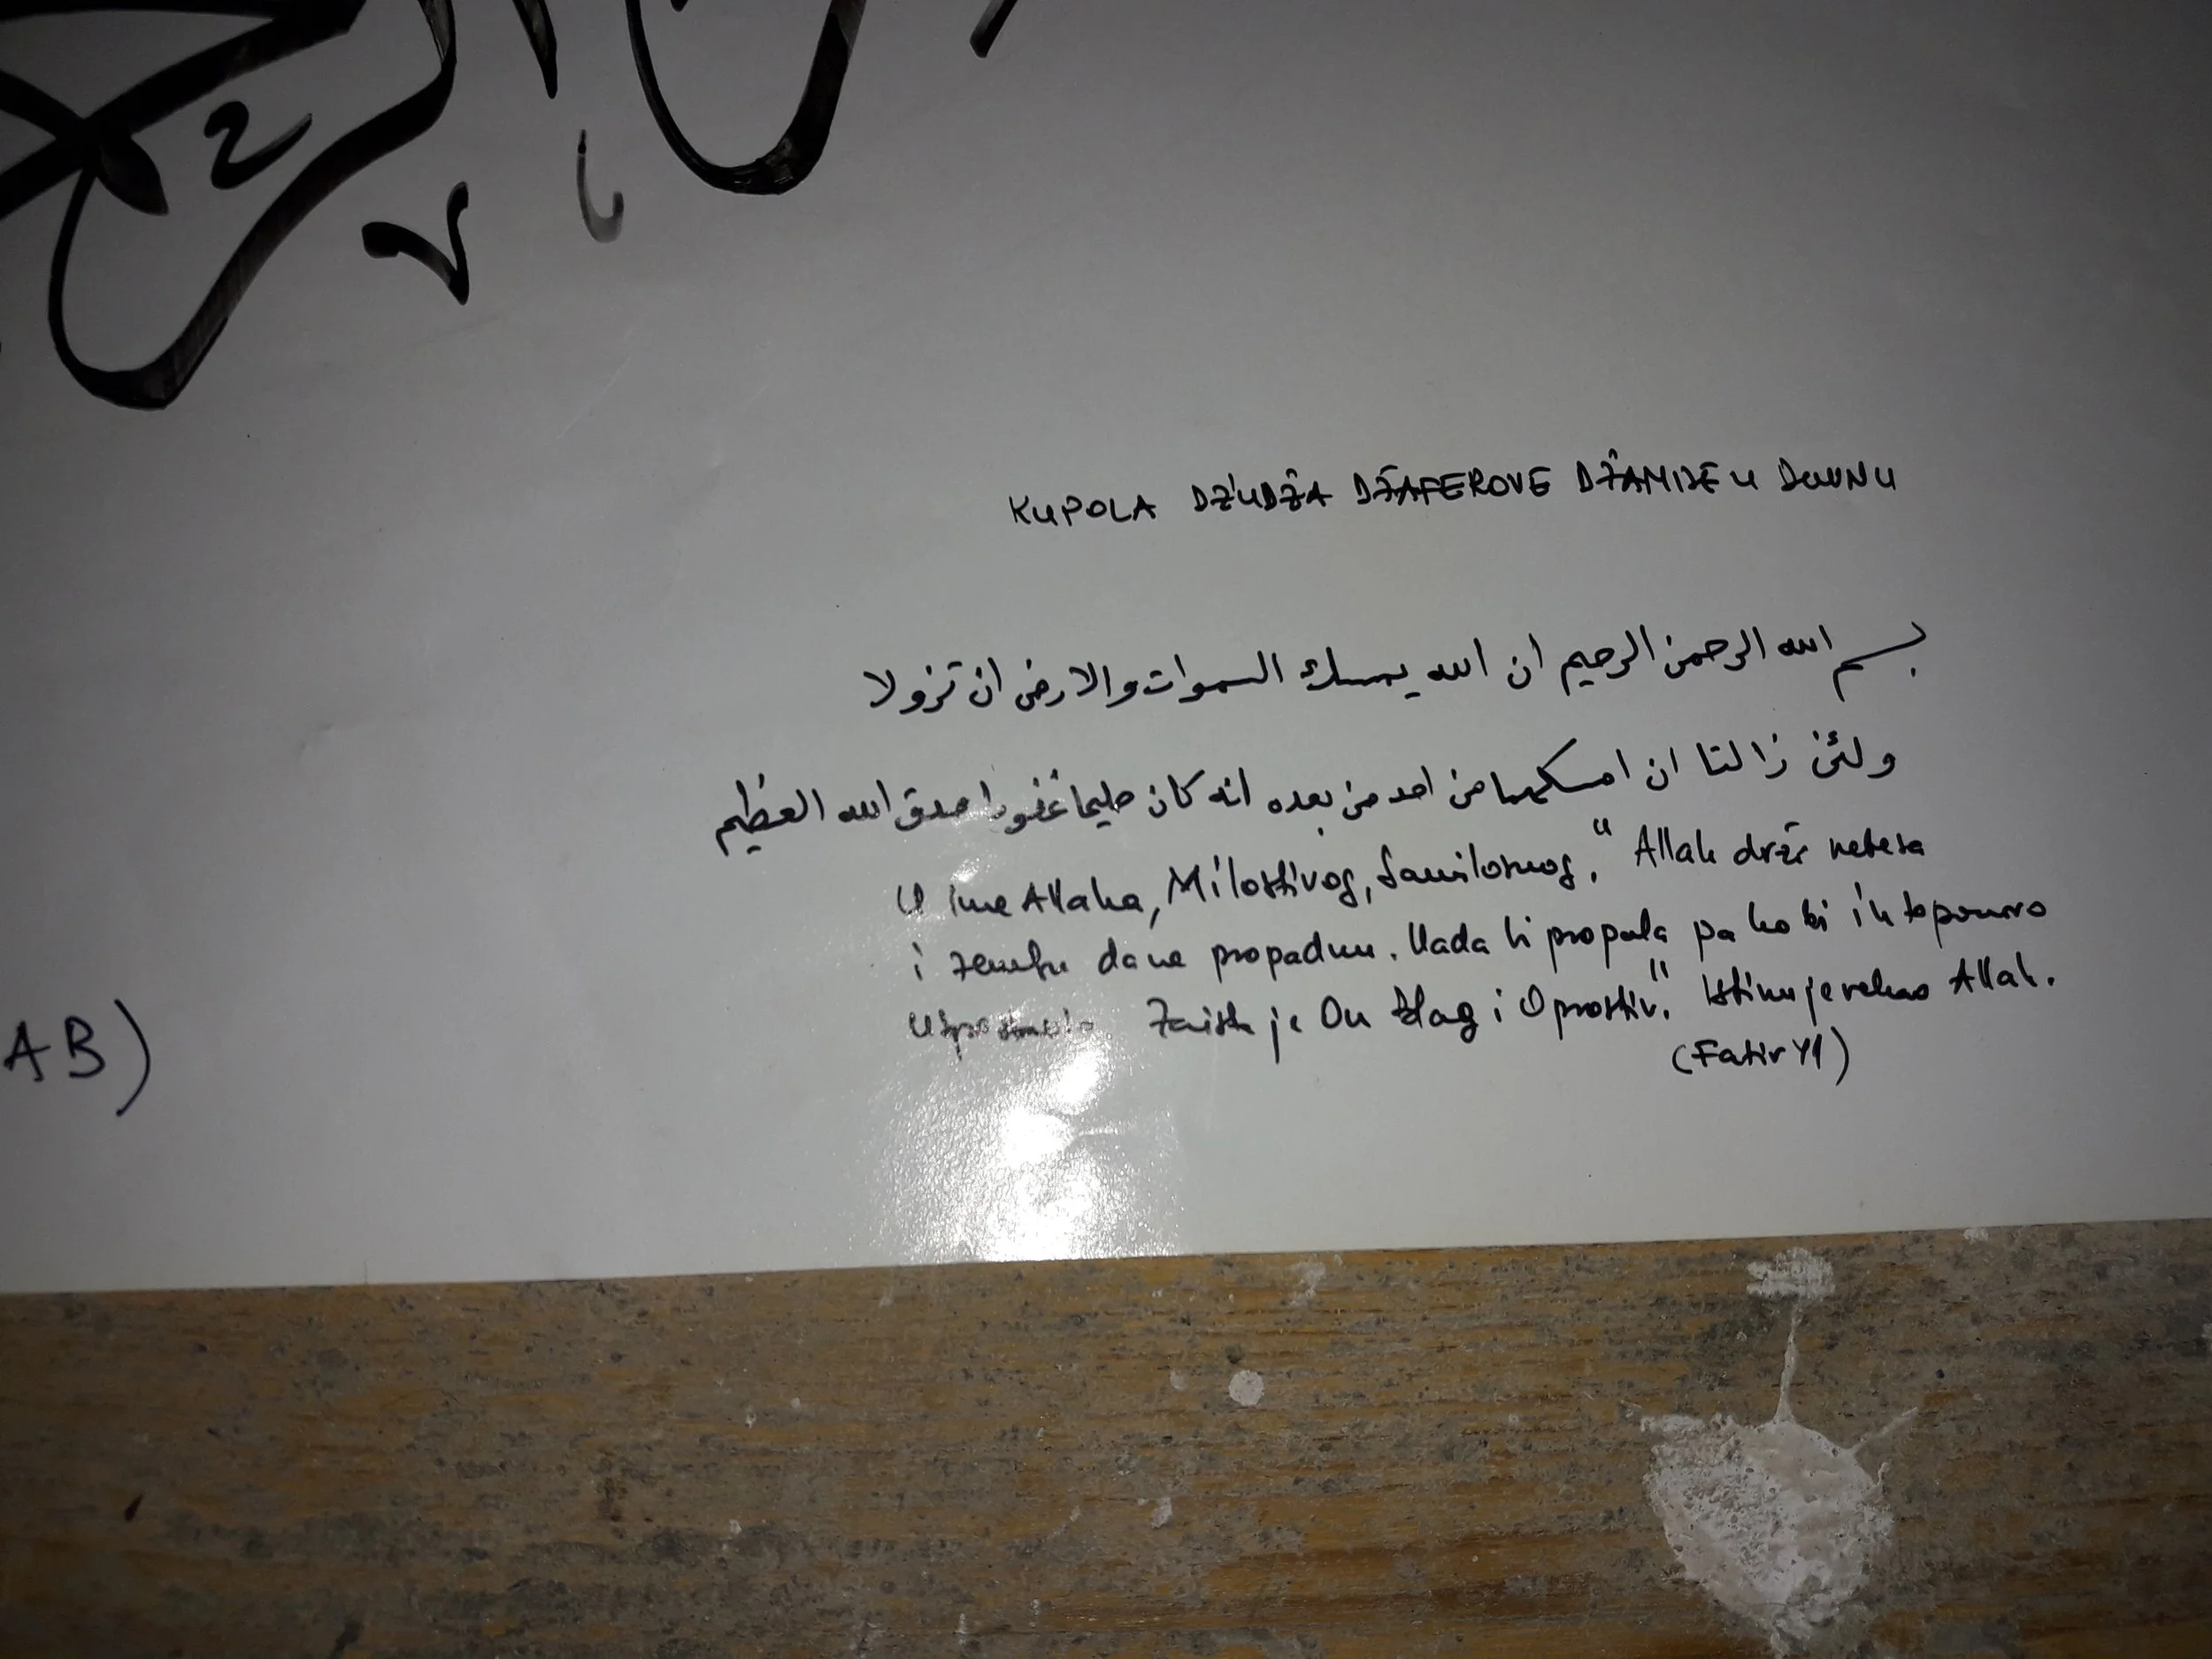 KUPOLA DŽUDŽA DŽAFEROVE DŽAMIJE U DUVNU
بسم الله الرحمن الرحيم ان الله يمسك السموات والارض ان تزولا
ولئن زالتا ان امسكهما من احد من بعده انه كان حليما غفورا صدق الله العظيم
U ime Allaha, Milostivog, Samilosnog. "Allah drži nebesa
i zemlju da ne propadnu. Kada bi propala pa ko bi ih toponovo
uspostavio Zaista je On Blag i Oprostiv." Istinu je rekao Allah.
(Fatir 41)
AB)